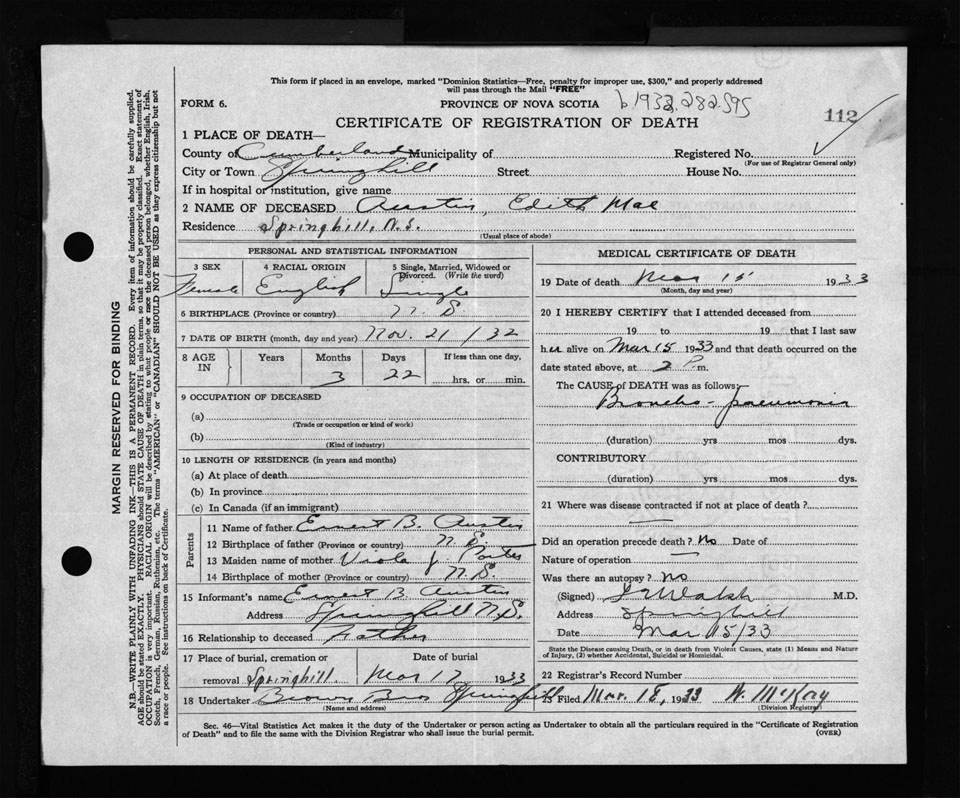 This form if placed in an envelope, marked "Dominion Statistics—Free, penalty for improper use, $300," and properly addressed
will pass through the Mail "FREE"
FORM 6.
PROVINCE OF NOVA SCOTIA
b 1932.282.595
CERTIFICATE OF REGISTRATION OF DEATH
112
1 PLACE OF DEATH—
County of Cumberland Municipality of Registered No.
(For use of Registrar General only)
City or Town Springhill Street House No.
If in hospital or institution, give name
2 NAME OF DECEASED Austin, Edith Mae
Residence Springhill, N.S.
(Usual place of abode)
PERSONAL AND STATISTICAL INFORMATION
3 SEX 4 RACIAL ORIGIN 5 Single, Married, Widowed or
Divorced. (Write the word)
Female English Single
6 BIRTHPLACE (Province or country) N.S.
7 DATE OF BIRTH (month, day and year) Nov. 21/32
8 AGE IN Years Months Days If less than one day,
3 22 hrs. or min.
9 OCCUPATION OF DECEASED
(a)
(Trade or occupation or kind of work)
(b)
(Kind of industry)
10 LENGTH OF RESIDENCE (in years and months)
(a) At place of death
(b) In province
(c) In Canada (if an immigrant)
Parents
11 Name of father Ernest B. Austin
12 Birthplace of father (Province or country) N.S.
13 Maiden name of mother Viola J. Porter
14 Birthplace of mother (Province or country) N.S.
15 Informant's name Ernest B. Austin
Address Springhill N.S.
16 Relationship to deceased Father
17 Place of burial, cremation or Date of burial
removal Springhill Mar 17 1933
18 Undertaker Brown Bros Springhill
(Name and address)
MEDICAL CERTIFICATE OF DEATH
19 Date of death Mar 15 1933
(Month, day and year)
20 I HEREBY CERTIFY that I attended deceased from
19 to 19 that I last saw
her alive on Mar 15 1933 and that death occurred on the
date stated above, at 2 P.m.
The CAUSE of DEATH was as follows:
Broncho-pneumonia
(duration) yrs mos dys.
CONTRIBUTORY
(duration) yrs mos dys.
21 Where was disease contracted if not at place of death?
Did an operation precede death? no Date of
Nature of operation —
Was there an autopsy? no
(Signed) Walsh M.D.
Address Springhill
Date Mar 15/33
State the Disease causing Death, or in death from Violent Causes, state (1) Means and Nature
of Injury, (2) whether Accidental, Suicidal or Homicidal.
22 Registrar's Record Number
23 Filed Mar. 18, 1933 W. McKay
(Division Registrar)
Sec. 46—Vital Statistics Act makes it the duty of the Undertaker or person acting as Undertaker to obtain all the particulars required in the "Certificate of Registration
of Death" and to file the same with the Division Registrar who shall issue the burial permit.
(OVER)
MARGIN RESERVED FOR BINDING
N.B.—WRITE PLAINLY WITH UNFADING INK—THIS IS A PERMANENT RECORD. Every item of information should be carefully supplied.
AGE should be stated EXACTLY. PHYSICIANS should STATE CAUSE OF DEATH in plain terms, so that it may be properly classified. Exact statement of
OCCUPATION is very important. RACIAL ORIGIN will be described by stating to what people or race the deceased person belonged, whether English, Irish,
Scotch, French, German, Russian, Ruthenian, etc. The terms "AMERICAN" or "CANADIAN" SHOULD NOT BE USED as they express citizenship but not
a race or people. See instructions on back of Certificate.